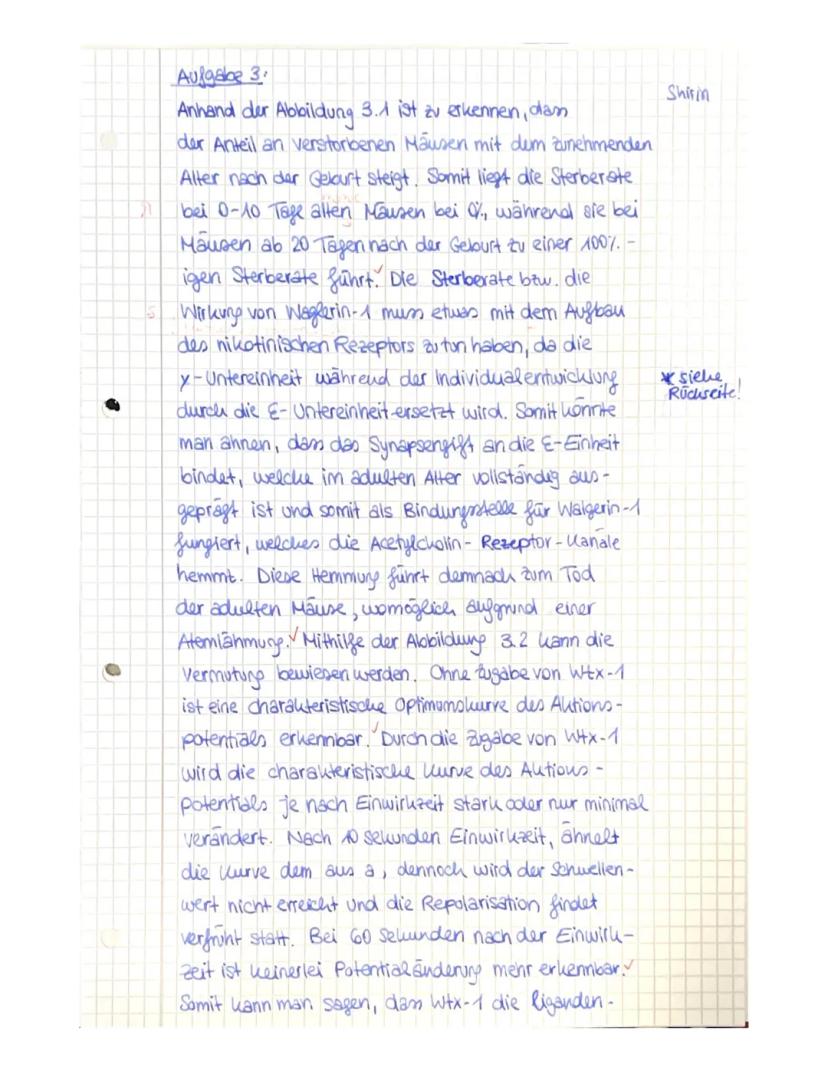 Aufgabe 3:
Shirin
Anhand der Abbildung 3.1 ist zu erkennen, dass
der Anteil an verstorbenen Mäusen mit dem zunehmenden
Alter nach der Geburt steigt. Somit liegt die Sterberate
bei 0-10 Tage alten Mäusen bei 0%, während sie bei
Mäusen ab 20 Tagen nach der Geburt zu einer 100%-
igen Sterberate führt. Die Sterberate bzw. die
Wirkung von Waglerin-1 muss etwas mit dem Aufbau
des nikotinischen Rezeptors zu tun haben, da die
γ-Untereinheit während der Individualentwicklung
* siehe
Rückseite!
durch die ε-Untereinheit ersetzt wird. Somit könnte
man ahnen, dass das Synapsengift an die ε-Einheit
bindet, welche im adulten Alter vollständig aus-
geprägt ist und somit als Bindungsstelle für Walgerin-1
fungiert, welches die Acetylcholin-Rezeptor-Kanäle
hemmt. Diese Hemmung führt demnach zum Tod
der adulten Mäuse, womöglich aufgrund einer
Atemlähmung. Mithilfe der Abbildung 3.2 kann die
Vermutung bewiesen werden. Ohne Zugabe von Wtx-1
ist eine charakteristische Optimumskurve des Aktions-
potentials erkennbar. Durch die Zugabe von Wtx-1
wird die charakteristische Kurve des Aktions-
potentials je nach Einwirkzeit stark oder nur minimal
verändert. Nach 10 Sekunden Einwirkzeit, ähnelt
die Kurve dem aus a, dennoch wird der Schwellen-
wert nicht erreicht und die Repolarisation findet
verfrüht statt. Bei 60 Sekunden nach der Einwirk-
zeit ist keinerlei Potentialänderung mehr erkennbar.
Somit kann man sagen, dass Wtx-1 die liganden-